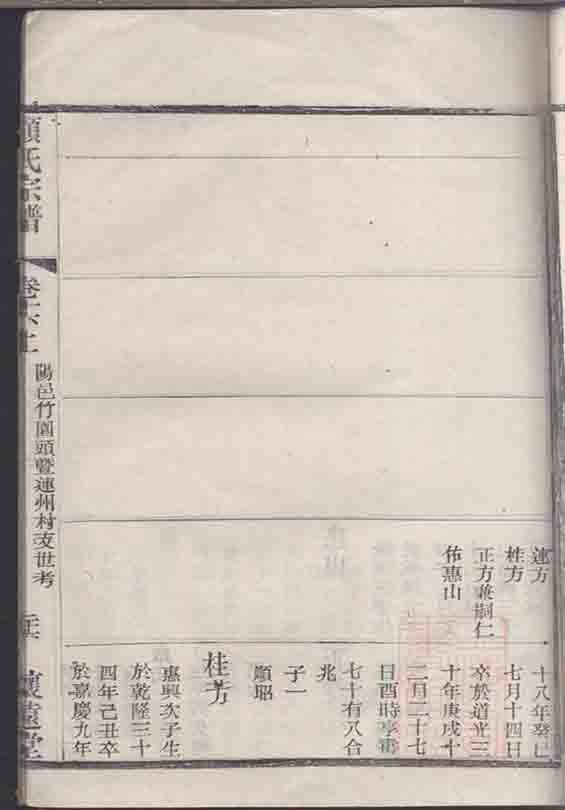 連方
桂方
正方兼嗣仁
佑惠山
十八年癸巳
七月十四日
卒於道光三
十年庚戌十
二月二十七
日酉時享壽
七十有八合
兆
子一
順昭
桂芳
惠興次子生
於乾隆三十
四年己丑卒
於嘉慶九年
氏宗譜
卷六上
陽邑竹園頭暨蓮州村支世考
懷遠堂